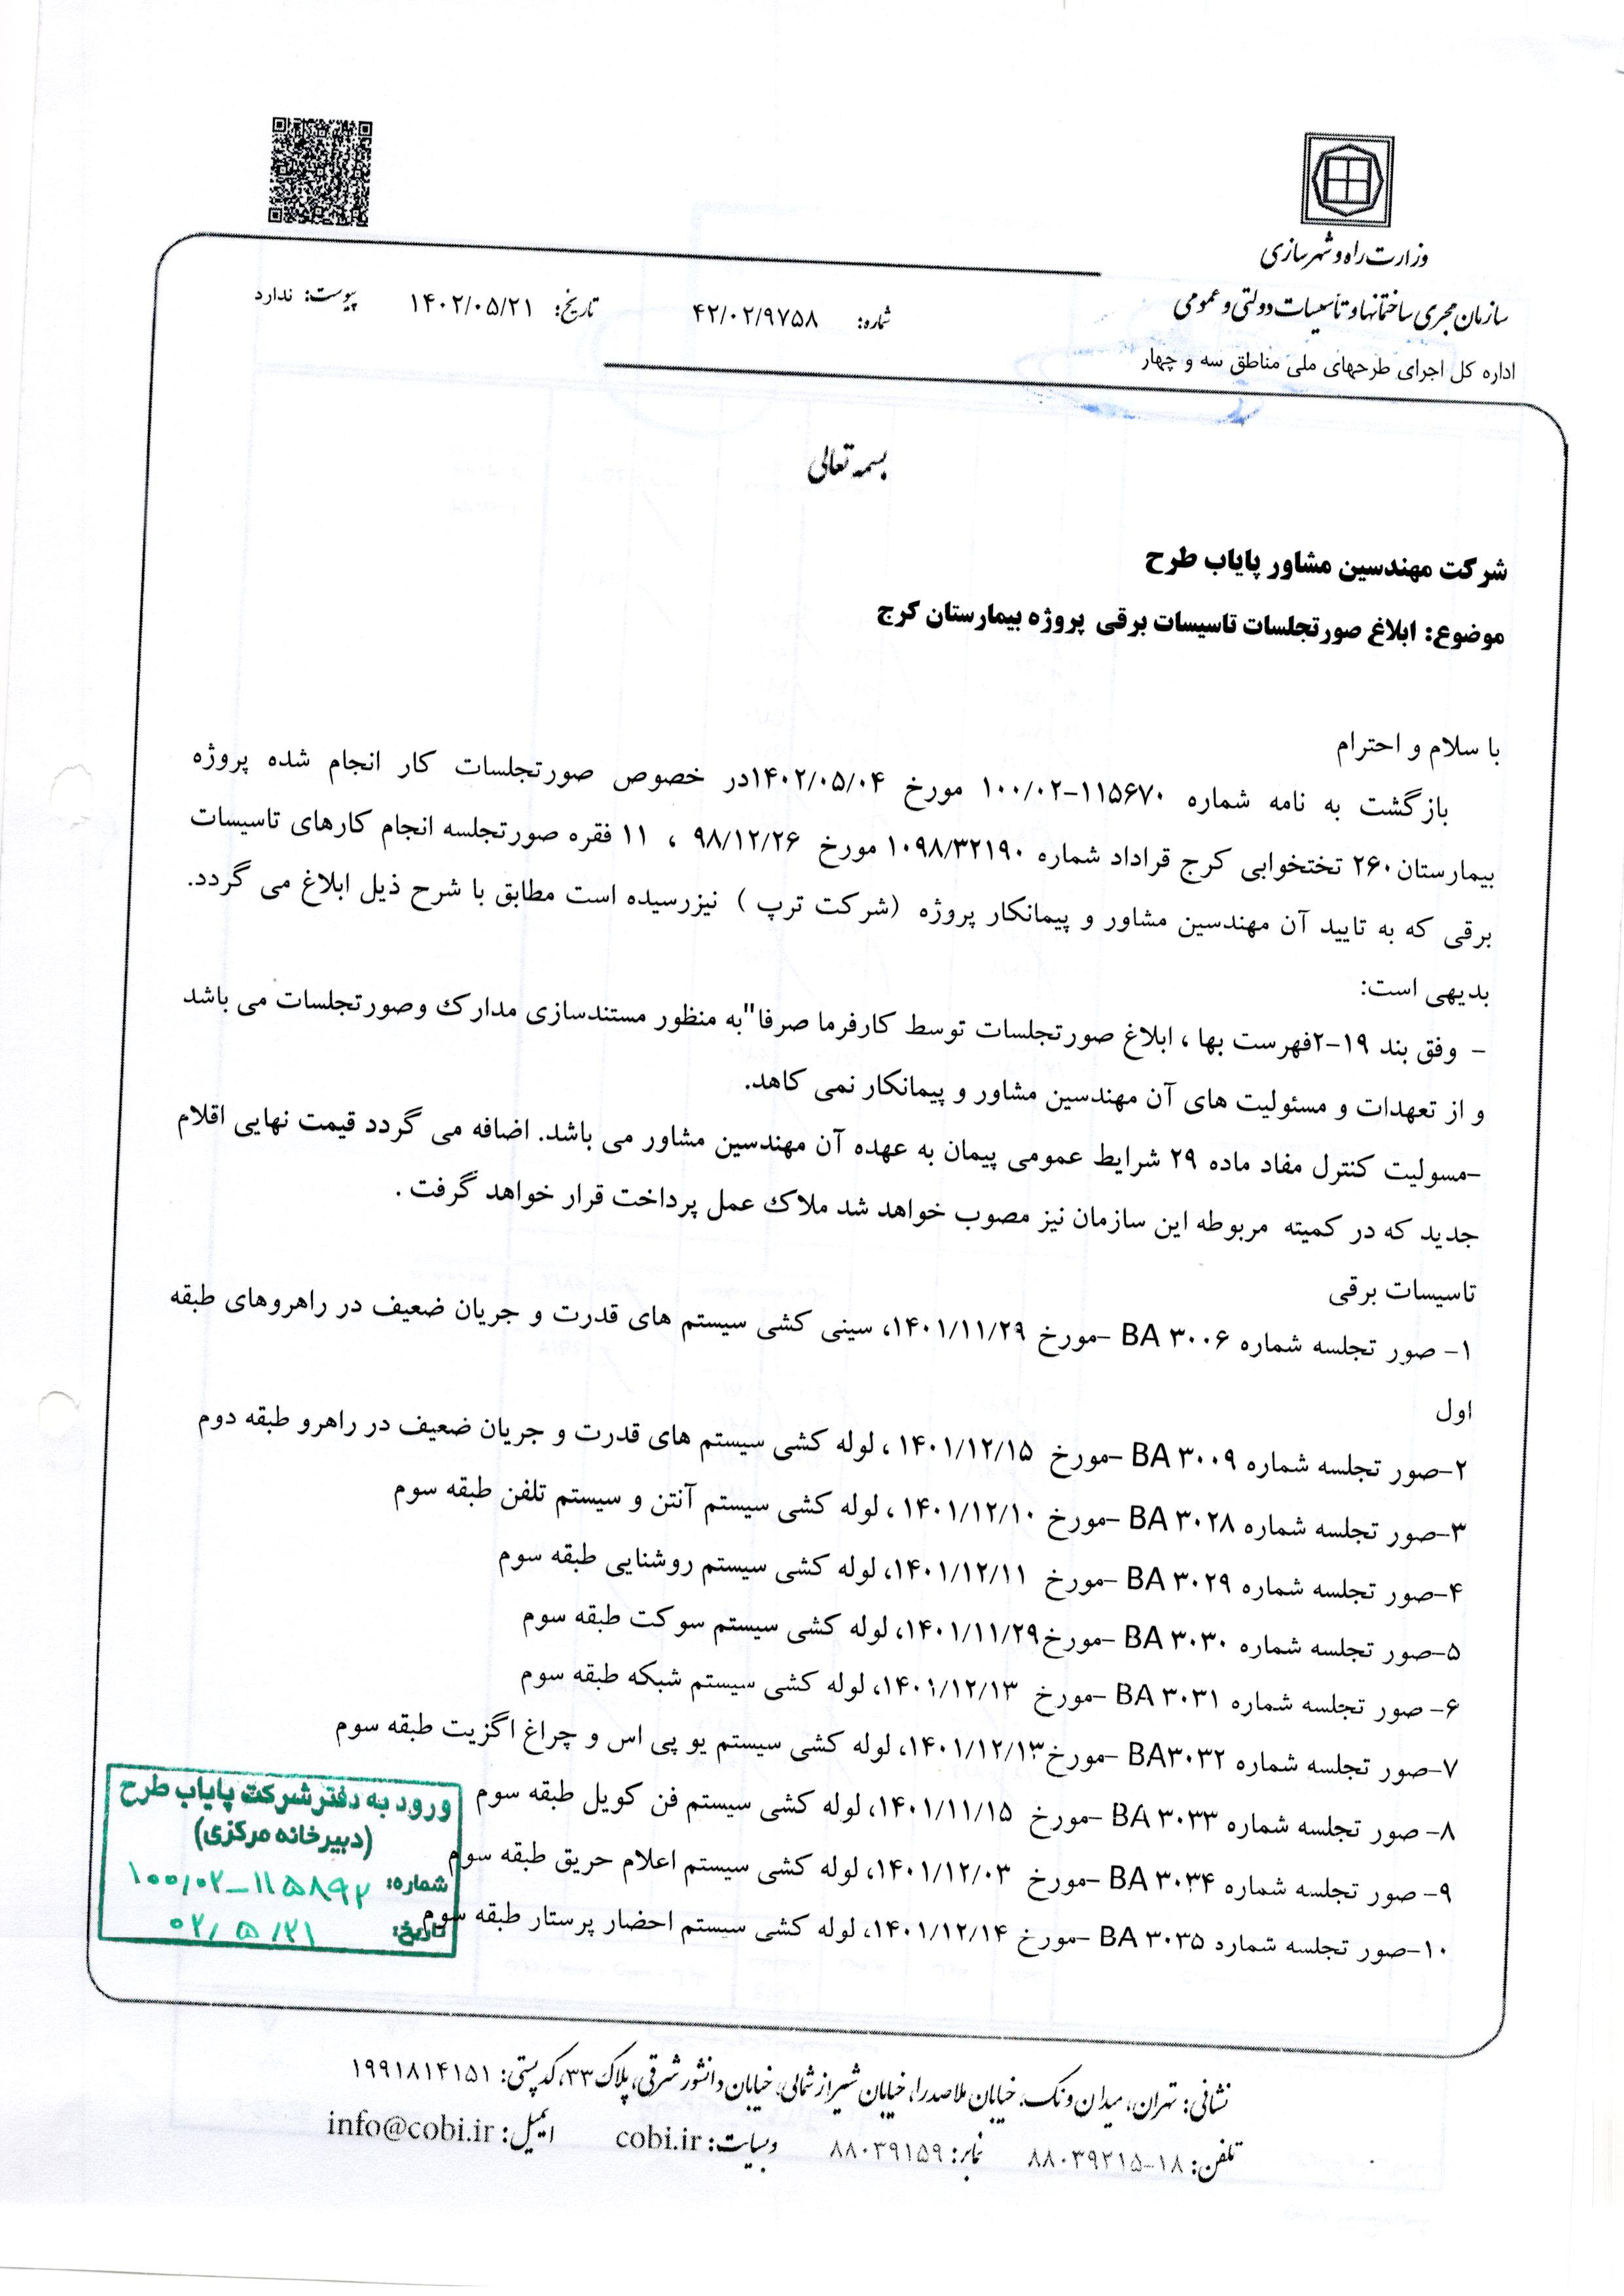 وزارت راه و شهرسازی
سازمان مجری ساختمانها و تاسیسات دولتی و عمومی
اداره کل اجرای طرحهای ملی مناطق سه و چهار
شماره: ۴۲/۰۲/۹۷۵۸
تاریخ: ۱۴۰۲/۰۵/۲۱
پیوست: ندارد
بسمه تعالی
شرکت مهندسین مشاور پایاب طرح
موضوع: ابلاغ صورتجلسات تاسیسات برقی پروژه بیمارستان کرج
با سلام و احترام
بازگشت به نامه شماره ۱۱۵۶۷۰-۱۰۰/۰۲ مورخ ۱۴۰۲/۰۵/۰۴در خصوص صورتجلسات کار انجام شده پروژه
بیمارستان۲۶۰ تختخوابی کرج قراداد شماره ۱۰۹۸/۳۲۱۹۰ مورخ ۹۸/۱۲/۲۶ ، ۱۱ فقره صورتجلسه انجام کارهای تاسیسات
برقی که به تایید آن مهندسین مشاور و پیمانکار پروژه (شرکت ترپ ) نیزرسیده است مطابق با شرح ذیل ابلاغ می گردد.
بدیهی است:
- وفق بند ۱۹-۲فهرست بها ، ابلاغ صورتجلسات توسط کارفرما صرفا"به منظور مستندسازی مدارک وصورتجلسات می باشد
و از تعهدات و مسئولیت های آن مهندسین مشاور و پیمانکار نمی کاهد.
-مسولیت کنترل مفاد ماده ۲۹ شرایط عمومی پیمان به عهده آن مهندسین مشاور می باشد. اضافه می گردد قیمت نهایی اقلام
جدید که در کمیته مربوطه این سازمان نیز مصوب خواهد شد ملاک عمل پرداخت قرار خواهد گرفت .
تاسیسات برقی
۱- صور تجلسه شماره BA ۳۰۰۶ -مورخ ۱۴۰۱/۱۱/۲۹، سینی کشی سیستم های قدرت و جریان ضعیف در راهروهای طبقه
اول
۲-صور تجلسه شماره BA ۳۰۰۹ -مورخ ۱۴۰۱/۱۲/۱۵ ، لوله کشی سیستم های قدرت و جریان ضعیف در راهرو طبقه دوم
۳-صور تجلسه شماره BA ۳۰۲۸ -مورخ ۱۴۰۱/۱۲/۱۰ ، لوله کشی سیستم آنتن و سیستم تلفن طبقه سوم
۴-صور تجلسه شماره BA ۳۰۲۹ -مورخ ۱۴۰۱/۱۲/۱۱، لوله کشی سیستم روشنایی طبقه سوم
۵-صور تجلسه شماره BA ۳۰۳۰ -مورخ۱۴۰۱/۱۱/۲۹، لوله کشی سیستم سوکت طبقه سوم
۶- صور تجلسه شماره BA ۳۰۳۱ -مورخ ۱۴۰۱/۱۲/۱۳، لوله کشی سیستم شبکه طبقه سوم
۷-صور تجلسه شماره BA۳۰۳۲ -مورخ۱۴۰۱/۱۲/۱۳، لوله کشی سیستم یو پی اس و چراغ اگزیت طبقه سوم
۸- صور تجلسه شماره BA ۳۰۳۳ -مورخ ۱۴۰۱/۱۱/۱۵، لوله کشی سیستم فن کویل طبقه سوم
۹- صور تجلسه شماره BA ۳۰۳۴ -مورخ ۱۴۰۱/۱۲/۰۳، لوله کشی سیستم اعلام حریق طبقه سوم
۱۰-صور تجلسه شماره BA ۳۰۳۵ -مورخ ۱۴۰۱/۱۲/۱۴، لوله کشی سیستم احضار پرستار طبقه سوم
ورود به دفتر شرکت پایاب طرح
(دبیرخانه مرکزی)
شماره: ۱۰۰/۰۲-۱۱۵۸۹۲
تاریخ: ۰۲/۵/۲۱
نشانی: تهران، میدان ونک، خیابان ملاصدرا، خیابان شیراز شمالی، خیابان دانشور شرقی، پلاک ۳۳، کد پستی: ۱۹۹۱۸۱۴۱۵۱
تلفن: ۱۸-۸۸۰۳۹۲۱۵ نمابر: ۸۸۰۳۹۱۵۹ وبسایت: cobi.ir ایمیل: info@cobi.ir